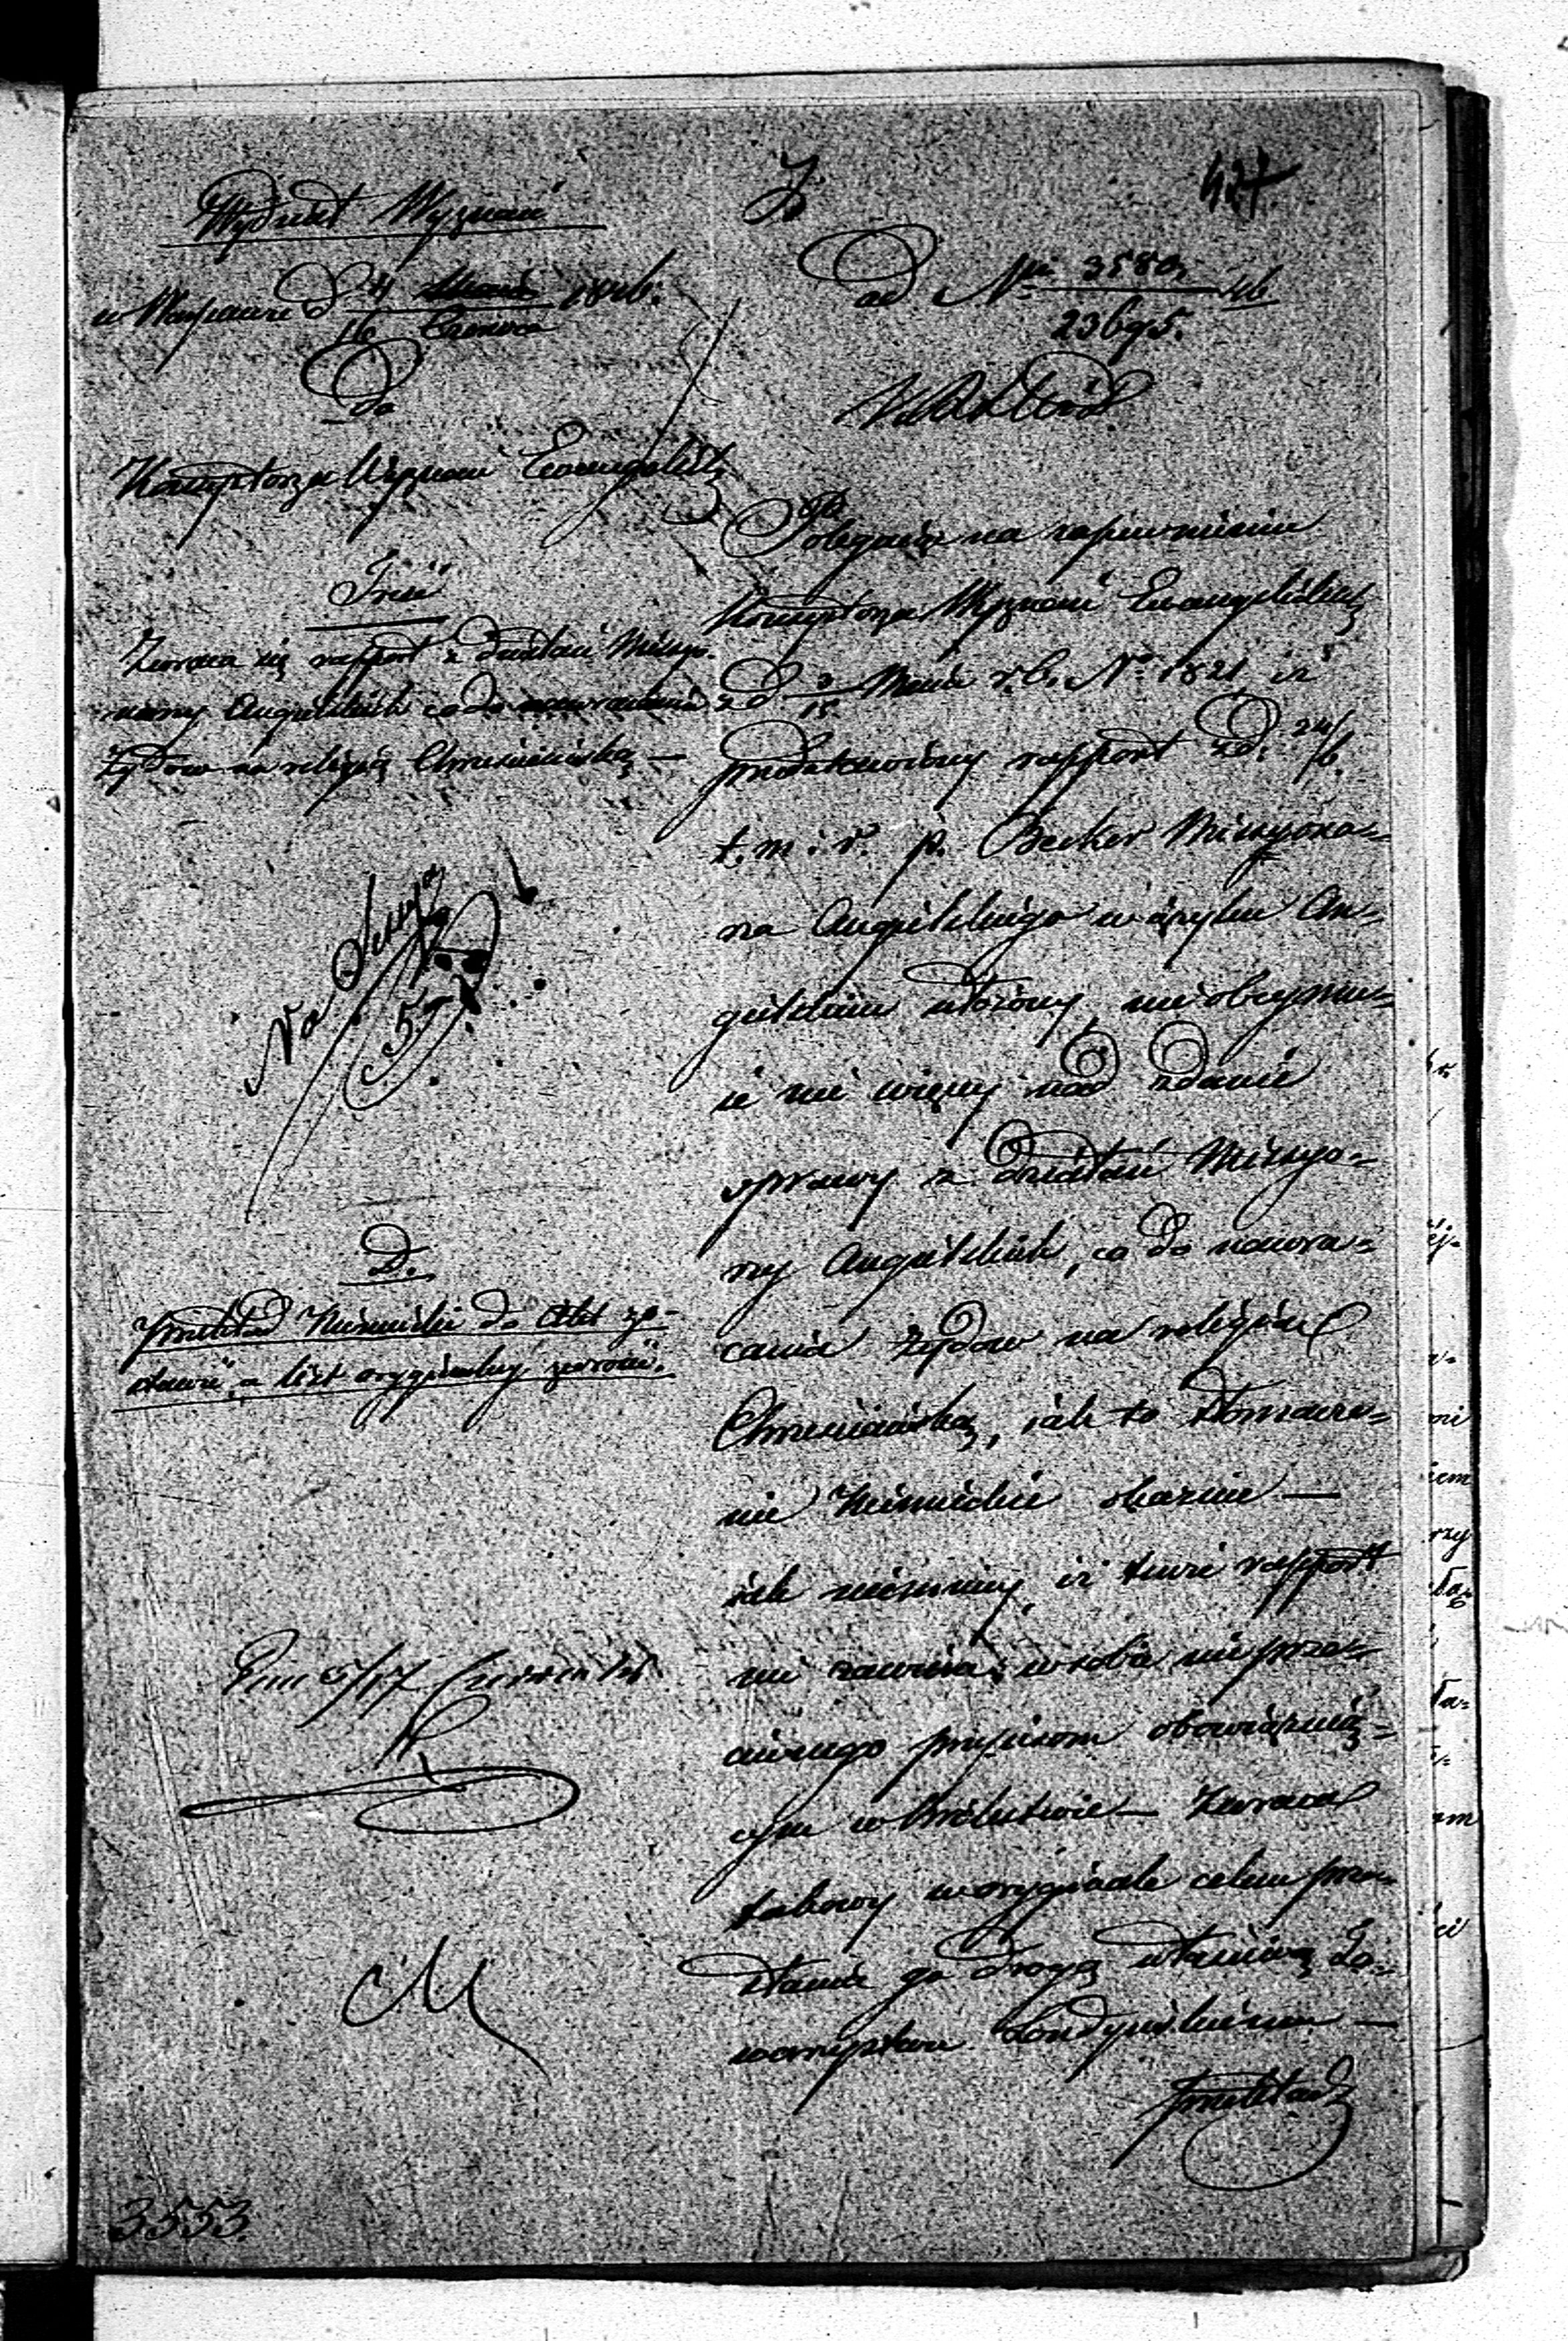 427
Z
Wydział Wyznań
w Warszawie d 4 Maia 1846.
16 Czerwca
Do
Konsystorza Wyznań Ewangelick
Treść
Zwraca się rapport z działań Missyo-
narzy Angielskich co do nawracania
Żydów na religią Chrześciańską —
Na Sessyą
D.
Przekład Niemiecki do Akt zo-
stawić, a list oryginalny zwrócić.
Dnia 5/17 Czerwca 46
M
3553
ad Nr 3580, 46
23695.
Polegaiąc na zapewnieniu
Konsystorza Wyznań Ewangelickich
z d 3/15 Maia r. b. No 1821 iż
przedstawiony rapport z d. 24/6
t. m. i r. p. Becker Missyona-
rza Angielskiego w ięzyku An-
gielskim ułożony, nie obeymu-
ie nic więcey nad zdanie
sprawy z działań Missyo-
rzy Angielskich, co do nawra-
cania żydów na religią
Chrześciańską, iak to tłomacze-
nie Niemieckie okazuie —
iak niemniey, iż tenże rapport
nie zawiera w sobie nic prze-
ciwnego przepisom obowiązuią-
cym w Królestwie — Zwraca
takowy w oryginale celem prze-
słania go drogą właściwą To-
warzystwu Londyńskiemu —